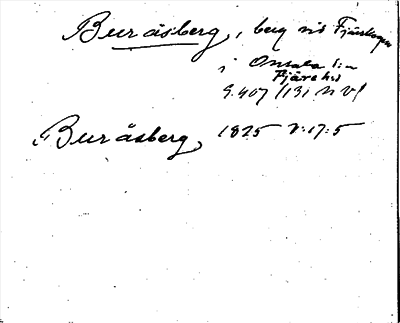 Buråsberg, berg vid Fjärehagen
i Onsala s:n
Fjäre h:d
S. 407 / 131 N Vf
"Buråsberg, 1825 V:17:5